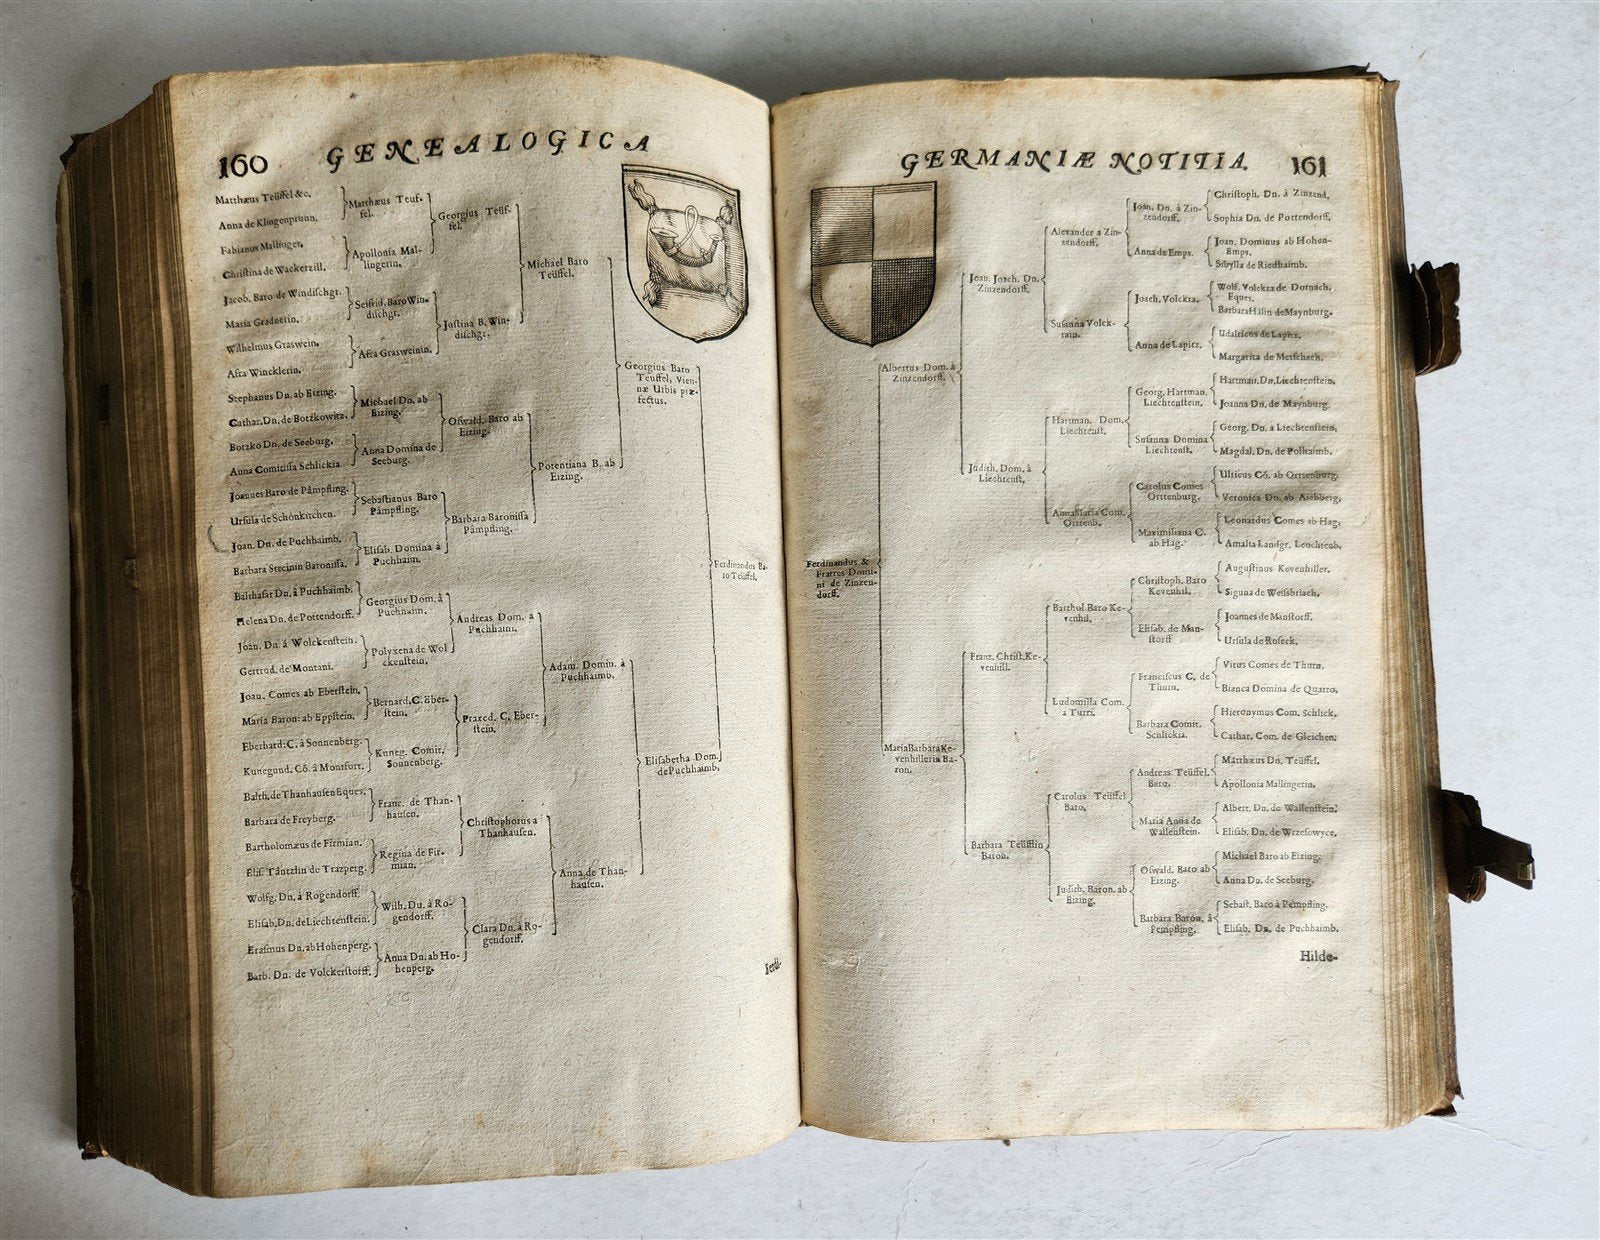 160 GENEALOGICA
Matthæus Teüffel &c.
Anna de Klingenprunn.
Fabianus Mallinger.
Christina de Wackerzill.
Jacob. Baro de Windischgr.
Maria Gradnerin.
Wilhelmus Graswein.
Afra Wincklerin.
Stephanus Dn. ab Eizing.
Cathar. Dn. de Botzkowitz.
Botzko Dn. de Seeburg.
Anna Comitissa Schlickia
Joannes Baro de Pâmpfling.
Ursula de Schönkirchen.
Joan. Dn. de Puchhaimb.
Barbara Streinin Baronissa.
Balthasar Dn. à Puchhaimb.
Helena Dn. de Pottendorff.
Joan. Dn. à Wolckenstein.
Gertrud. de Montani.
Joan. Comes ab Eberstein.
Maria Baron: ab Eppstein.
Eberhard: C. à Sonnenberg.
Kunegund. Cõ. à Montfort.
Balth. de Thanhausen Eques.
Barbara de Freyberg.
Bartholomæus de Firmian.
Elis. Täntzlin de Trazperg.
Wolfg. Dn. à Rogendorff.
Elisab. Dn. de Liechtenstein.
Erasmus Dn. ab Hohenperg.
Barb. Dn. de Volckerstorff.
Matthæus Teuf-
fel.
Apollonia Mal-
lingerin.
Seifrid. Baro Win-
dischgr.
Afra Grasweinin.
Michael Dn. ab
Eizing.
Anna Domina de
Seeburg.
Sebastianus Baro
Pâmpfling.
Elisab. Domina à
Puchhaim.
Georgius Dom. à
Puchhaim.
Polyxena de Wol
ckenstein.
Bernard. C. Eber-
stein.
Kuneg. Comit.
Sonnenberg.
Franc. de Than-
hausen.
Regina de Fir-
mian.
Wilh. Dn. à Ro-
gendorff.
Anna Dn. ab Ho-
henperg.
Georgius Teüf-
fel.
Justina B. Win-
dischgr.
Oswald. Baro ab
Eizing.
Barbara Baronissa
Pâmpfling.
Andreas Dom. à
Puchhaim.
Praxed. C. Eber-
stein.
Christophorus a
Thanhausen.
Clara Dn. à Ro-
gendorff.
Michael Baro
Teüffel.
Potentiana B. ab
Eizing.
Adam. Domin. à
Puchhaimb.
Anna de Than-
hausen.
Georgius Baro
Teüffel, Vien-
næ Urbis præ-
fectus.
Elisabetha Dom.
de Puchhaimb.
Ferdinandus Ba-
ro Teüffel.
Ferdi-
GERMANIÆ NOTITIA. 161
Ferdinandus &
Fratres Domi-
ni de Zinzen-
dorff.
Albertus Dom. à
Zinzendorff.
Maria Barbara Ke-
venhilleria Ba-
ron.
Joan. Joach. Dn.
Zinzendorff.
Judith. Dom. à
Liechtenst.
Franz. Christ. Ke-
venhill.
Barbara Teüfflin
Baron.
Alexander a Zin-
zendorff.
Susanna Volck-
rain.
Hartman. Dom.
Liechtenst.
Anna Maria Com.
Orttenb.
Barthol. Baro Ke-
venhil.
Ludomilla Com.
à Turri.
Carolus Teüffel
Baro.
Judith. Baron. ab
Eizing.
Joan. Dn. à Zin-
zendorff.
Anna de Emps.
Joach. Volckra.
Anna de Lapitz.
Georg. Hartman.
Liechtenstein.
Susanna Domina
Liechtenst.
Carolus Comes
Orttenburg.
Maximiliana C.
ab Hag.
Christoph. Baro
Kevenhil.
Elisab. de Man-
storff
Franciscus C. de
Thurn.
Barbara Comit.
Schlickia.
Andreas Teüffel.
Baro.
Maria Anna de
Wallenstein.
Oswald. Baro ab
Eizing.
Barbara Baron. à
Pempfling.
Christoph. Dn. à Zinzend.
Sophia Dn. de Pottendorff.
Joan. Dominus ab Hohen-
Emps.
Sibylla de Riedhaimb.
Wolf. Volckra de Dornach.
Eques.
Barbara Hâlin de Maynburg.
Udalricus de Lapitz.
Margarita de Metschach.
Hartman. Dn. Liechtenstein.
Joanna Dn. de Maynburg.
Georg. Dn. a Liechtenstein.
Magdal. Dn. de Polhaimb.
Ulricus Cõ. ab Orttenburg.
Veronica Dn. ab Aichberg.
Leonardus Comes ab Hag.
Amalia Landgr. Leuchtenb.
Augustinus Kevenhiller.
Siguna de Weissbriach.
Joannes de Manstorff.
Ursula de Roseck.
Vitus Comes de Thurn.
Bianca Domina de Quarto.
Hieronymus Com. Schlick.
Cathar. Com. de Gleichen.
Matthæus Dn. Teüffel.
Apollonia Mallingerin.
Albert. Dn. de Wallenstein.
Elisab. Dn. de Wrzesowyce.
Michael Baro ab Eizing.
Anna Dn. de Seeburg.
Sebast. Baro à Pempfling.
Elisab. Dn. de Puchhaimb.
Hilde-